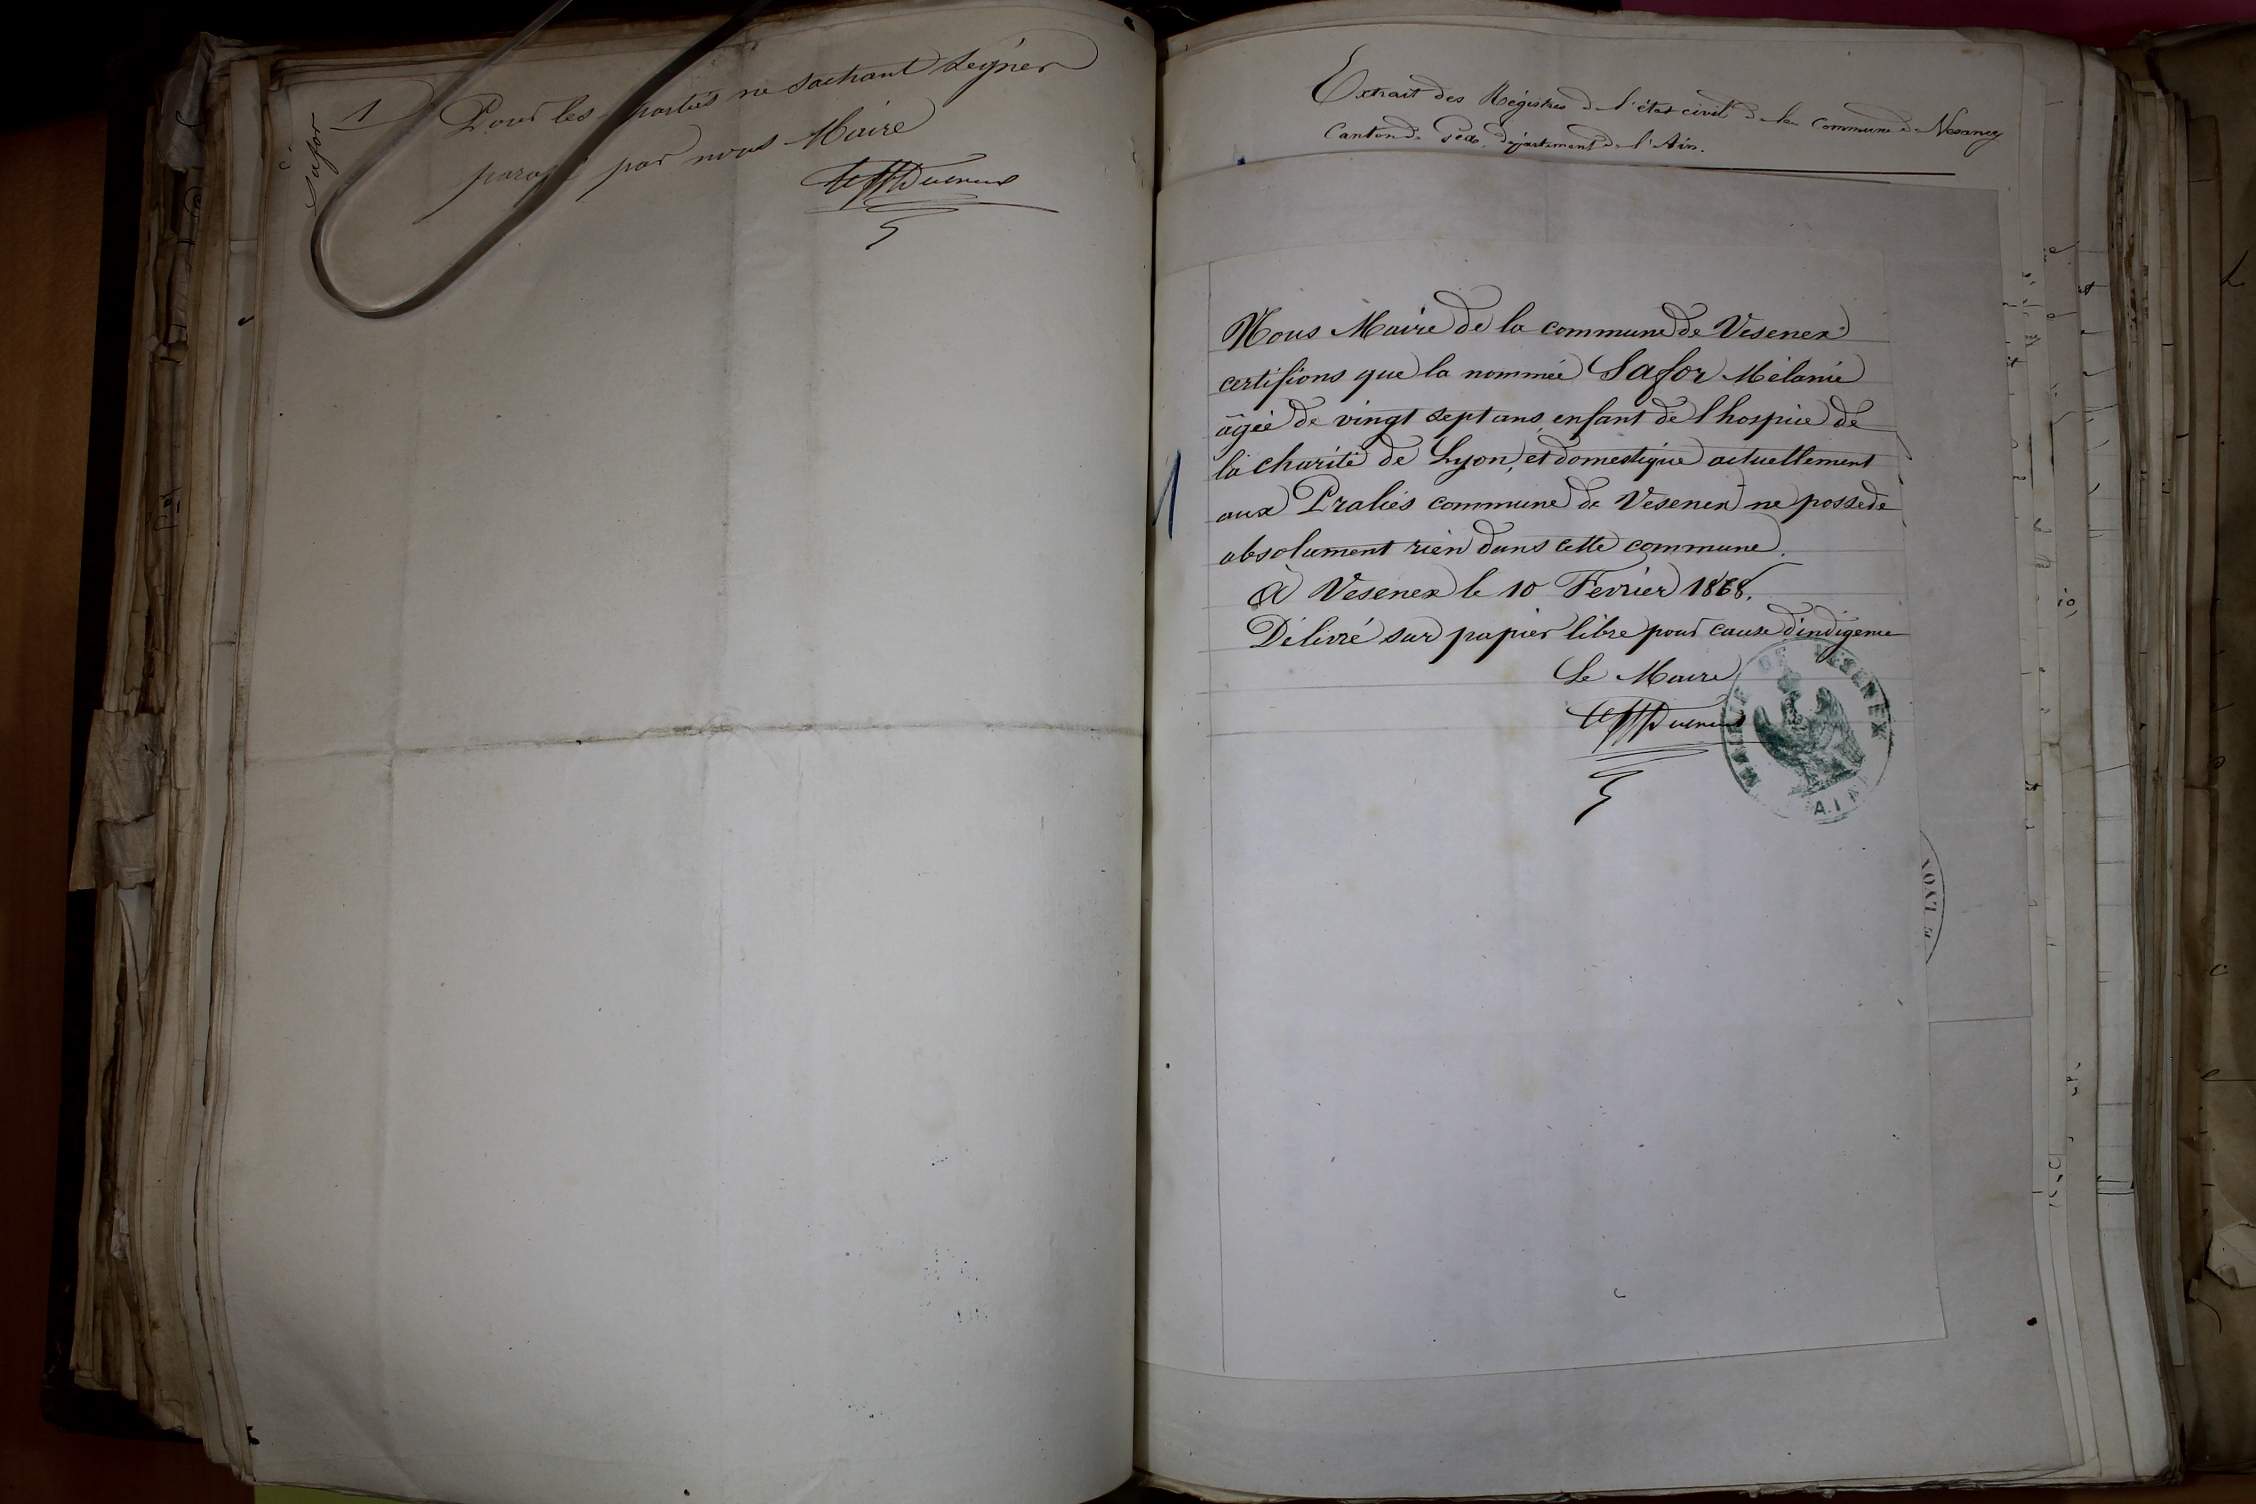 1
Safor
Pour les parties ne sachant seigner
par nous Maire
Extrait des Régistres de l'état civil de la commune de Vesancy
Canton de Gex, département de l'Ain.
Nous Maire de la commune de Vesenex
certifions que la nommée Safor Mélanie
âgée de vingt sept ans, enfant de l hospice de
la charité de Lyon, et domestique actuellement
aux Praliés commune de Vesenex ne possede
absolument rien dans cette commune.
A Vesenex le 10 Fevrier 1868.
Délivré sur papier libre pour cause d'indigence
Le Maire
MAIRIE DE VESENEX
AIN
1